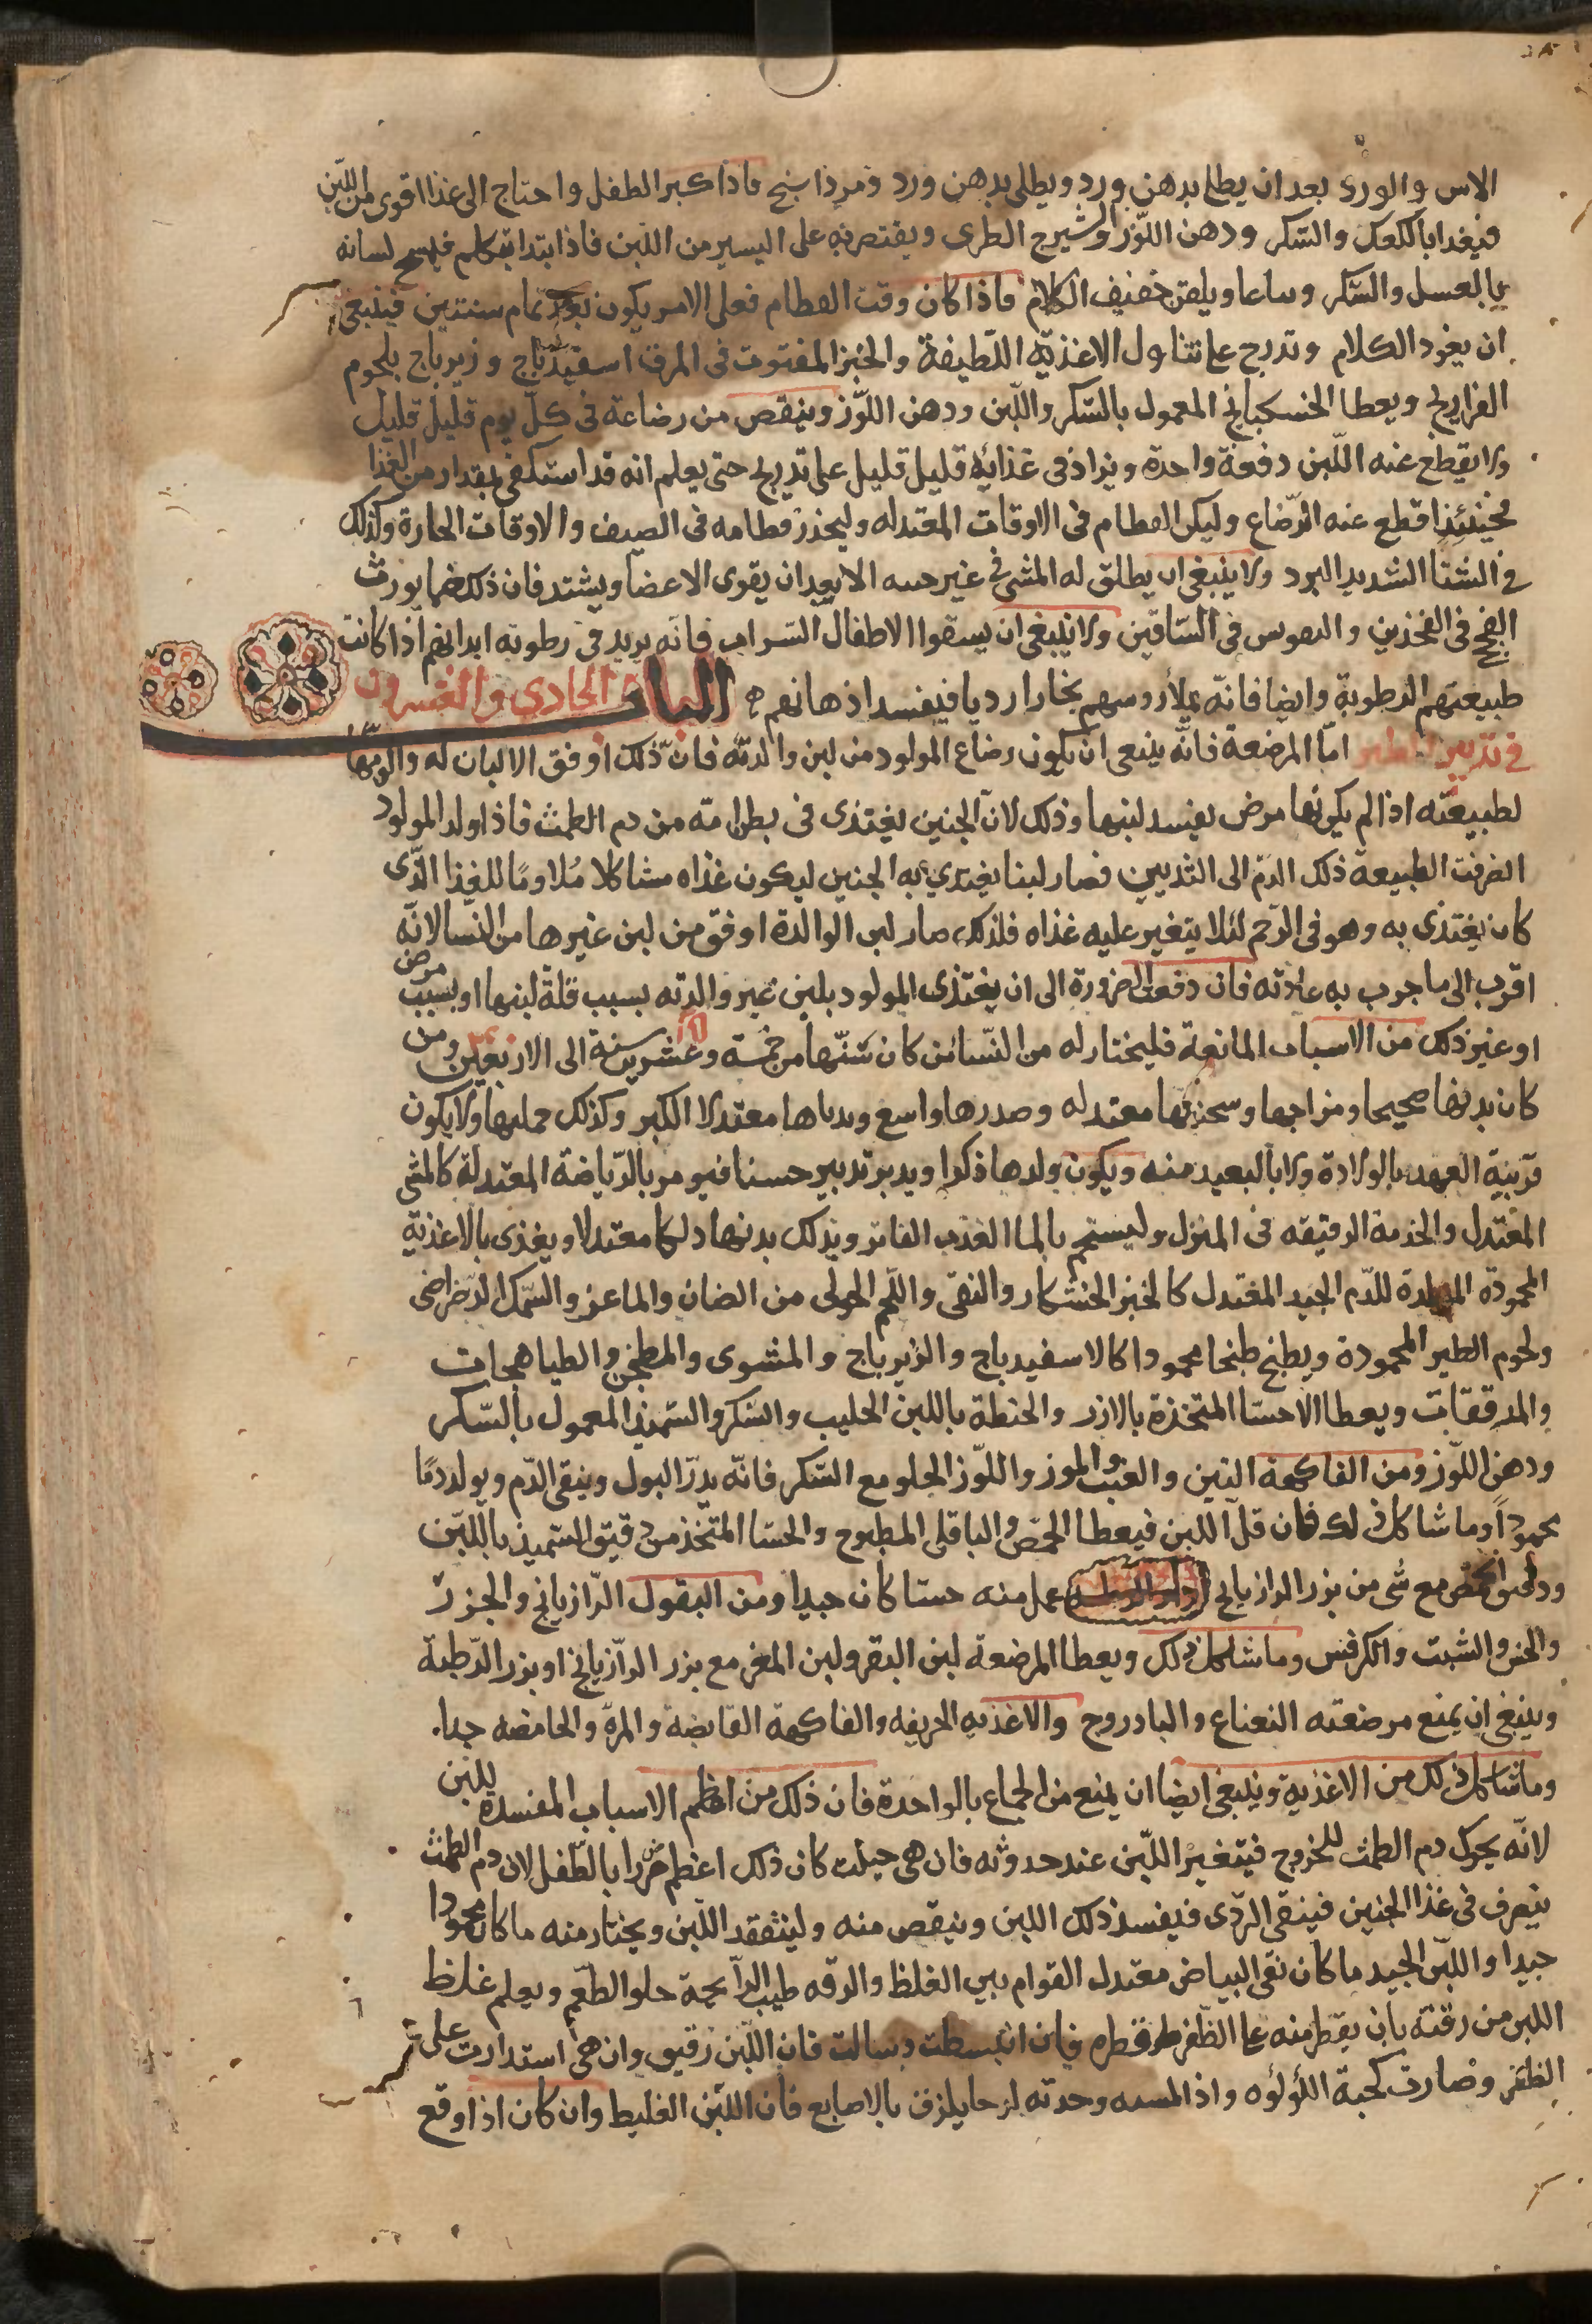 الاس والورد بعد ان يطلا بدهن ورد ويطلى بدهن ورد ومرداسنج فاذا كبر الطفل واحتاج الى غذا اقوى من اللبن
فيغدا بالكعك والسّكر ودهن اللّوز والشيرج الطرى ويقتصر به على اليسير من اللبن فاذا ابتدا يتكلم فيمسح لسانه
بالعسل والسّكر وساعا ويلقن خفيف الكلام فاذا كان وقت الفطام فعلى الامر يكون بعد تمام سنتين فينبغى
ان يعود الكلام وتدرج على تناول الاغذيّة اللّطيفة والخبز المفتوت فى المرق اسفيدباج وزيرباج بلحوم
الفراريج ويعطا الخسكبانج المعمول بالسّكر واللّبن ودهن اللّوز وينقص من رضاعة فى كلّ يوم قليل قليل
ولا يقطع عنه اللّبن دفعة واحدة ويزاد فى غذائه قليل قليل على تدريج حتى يعلم انه قد استكفى بمقدار من الغذا
فحينئذ اقطع عنه الرّضاع وليكن الفطام فى الاوقات المعتدله وليحذر فطامه فى الصيف والاوقات الحارة وكذلك
فى الشتا الشديد البرد ولا ينبغى ان يطلق له المشى فى غير حينه الا بعد ان يقوى الاعضا ويشتد فان ذلك مما يورث
الفحج فى الفخذين والتقوس فى السّاقين ولا ينبغى ان يسقوا الاطفال الشراب فانه يزيد فى رطوبة ابدانهم اذا كانت
طبيعتهم الرطوبة وايضا فانّه يملا روسهم بخارا رديا فيفسد اذهانهم ه الباب الحادى والعشرون
فى تدبير الظير امّا المرضعة فانّه ينبغى ان يكون رضاع المولود من لبن والدتّه فانّ ذلك اوفق الالبان له والومها
لطبيعته اذا لم يكن بها مرض يفسد لبنها وذلك لانّ الجنين يغتذى فى بطن امّه من دم الطمث فاذا ولد المولود
انصرفت الطبيعة ذلك الدم الى الثديين فصار لبنا يغتذي به الجنين ليكون غذاه مشاكلا مُلاومًا للغذا الّذى
كان يغتذى به وهو فى الرّحم لئلا يتغير عليه غذاه فلذلك صار لبن الوالدة اوفق من لبن غيرها من النّسا لانّه
اقرب الى ما جرب به عادته فان دفعت الضرورة الى ان يغتذى المولود بلبن غير والدته بسبب قلة لبنها او بسبب مرض
او غير ذلك من الاسباب المانعة فليختار له من النّسا من كان سَنّها من خمسة وعشرين سنة الى الاربعين ومن
كان بدنها صحيحا ومزاجها وسحنتها معتدله وصدرها واسع وثدياها معتدلا الكبر وكذلك حملتها ولا يكون
قريبة العهد بالولادة ولا بالبعيد منه ويكون ولدها ذكرا ويدبر تدبير حسنا فيومر بالرّياضة المعتدلة كالمشى
المعتدل والخدمة الرقيقه فى المنزل وليستحم بالما العذب الفاتر ويدلك بدنها دلكا معتدلا ويغذى بالاغذية
المحمودّة المولدة للدّم الجيد المعتدل كالخبز الخشكار والنقى واللّحم الحولى من الضان والماعز والسّمك الرّضراضى
ولحوم الطير المحمودة ويطبخ طبخا محمودا كالاسفيدباج والزيرباج والمشوى والمطجن والطياهجات
والمدققات ويعطا الاحسّا المتخذة بالارز والحنطة باللبن الحليب والسّكر والسّميذ المعمول بالسّكر
ودهن اللّوز ومن الفاكهة التين والعنب والموز واللّوز الحلو مع السّكر فانّه يدرّ البول وينقى الدّم ويولد دمًا
محموداً وما شاكل ذلك فان قلّ اللبن فيعطا الحمّص والباقلى المطبوخ والحسّا المتّخذ من دقيق السّميذ باللّبن
ودقيق الحمّص مع شى من بزر الرازيانج عمل منه حسّا كان جيدا ومن البقول الرّازيانج والجزر
والخس والشبت والكرفس وما شاكل ذلك ويعطا المرضعة لبن البقر ولبن المعز مع بزر الرّازيانج او بزر الرّطبة
وينبغى ان يمنع مرضعته النعناع والبادروج والاغذيه الحريفه والفاكهة القابضة والمرّة والحامضه جدا.
وما شاكل ذلك من الاغذية وينبغى ايضا ان يمنع من الجماع بالواحدة فان ذلك من اعظم الاسباب المفسدة للبن
لانّه يحرك دم الطمث للخروج فيتغير اللّبن عند حدوثه فان هى حبلت كان ذلك اعظم ضررا بالطّفل لان دم الطمث
ينصرف فى غذا الجنين فينقى الردّى فيفسد ذلك اللبن وينقص منه وليتفقد اللّبن ويختار منه ما كان محمودا
جيدا واللّبن الجيد ما كان نقى البياض معتدل القوام بين الغلظ والرقه طيب الرّآيحة حلو الطّعم ويعلم غلظ
اللبن من رقته بان يقطر منه على الظّفر قطره فان انبسطت وسالت فان اللّبن رقيق وان هى استدارت على
الظفر وصارت كحبة اللّؤلؤه واذا لمسته وجدته لزجا يلزق بالاصابع فان اللّبن الغليظ وان كان اذا وقع